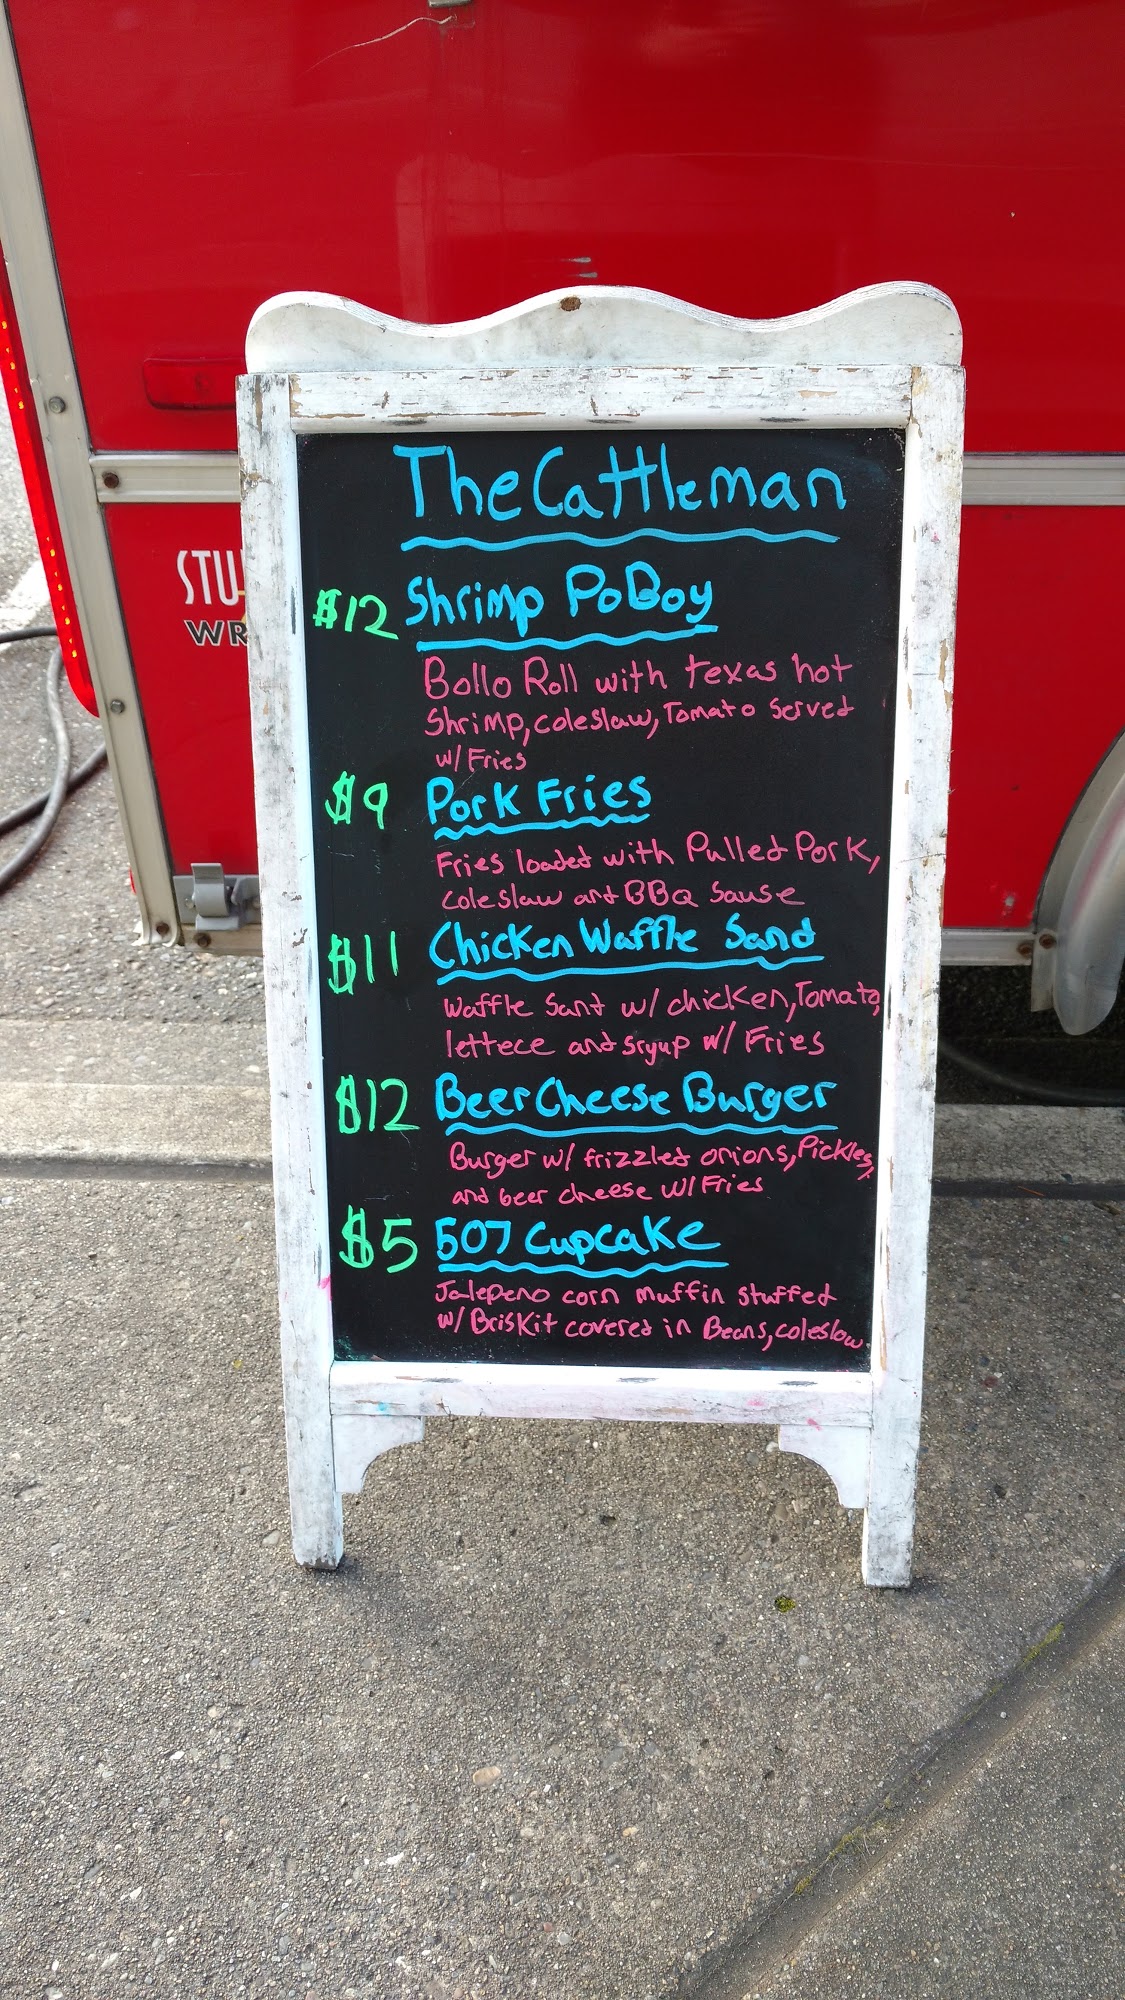 The Cattleman
$12 Shrimp PoBoy
Bollo Roll with texas hot
Shrimp, coleslaw, Tomato Served
w/ Fries
$9 Pork Fries
Fries loaded with Pulled Pork,
coleslaw and BBQ Sause
$11 Chicken Waffle Sand
Waffle Sand w/ chicken, Tomato,
lettece and sryup w/ Fries
$12 Beer Cheese Burger
Burger w/ frizzled onions, Pickles,
and beer cheese w/ Fries
$5 507 Cupcake
Jalepeno corn muffin stuffed
w/ Brisket covered in Beans, coleslow.
STU
WR